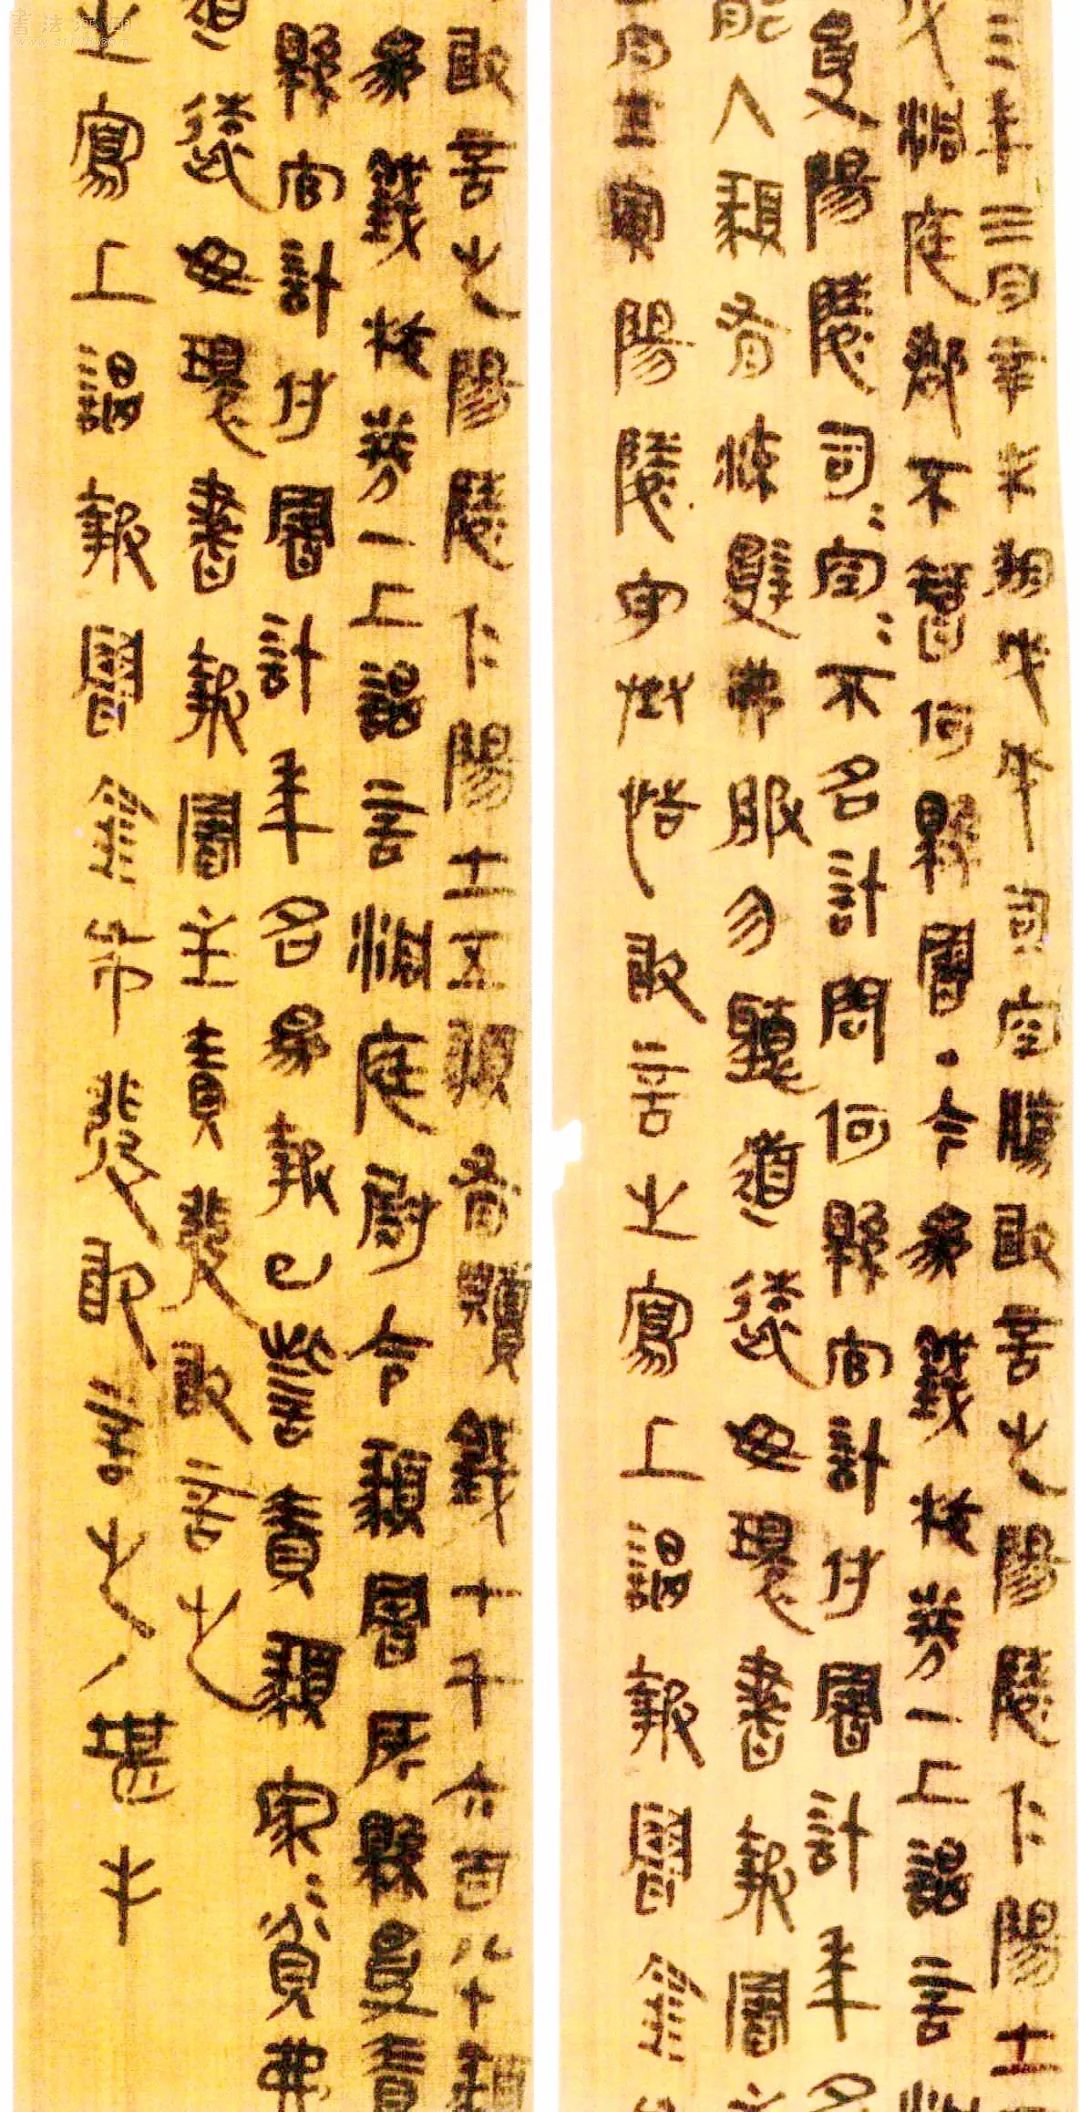 三年三月辛未朔戊戌司空騰敢言之陽陵仁陽士
戍洞庭郡不智何縣署·今為錢校券一上謁言洞
受陽陵司=空=不名計問何縣官計付署計年名
能入䫌有流辭弗服勿聽道遠毋環書報署主
月壬寅陽陵守丞恬敢言之寫上謁報署金
敢言之陽陵仁陽士五䫌有贖錢七千六百八十䫌
為錢校券一上謁言洞庭尉令䫌署所縣受責
縣官計付署計年名為報已訾責䫌家=貧弗
道遠毋環書報署主責發敢言之
之寫上謁報署金布發敢言之/堪手